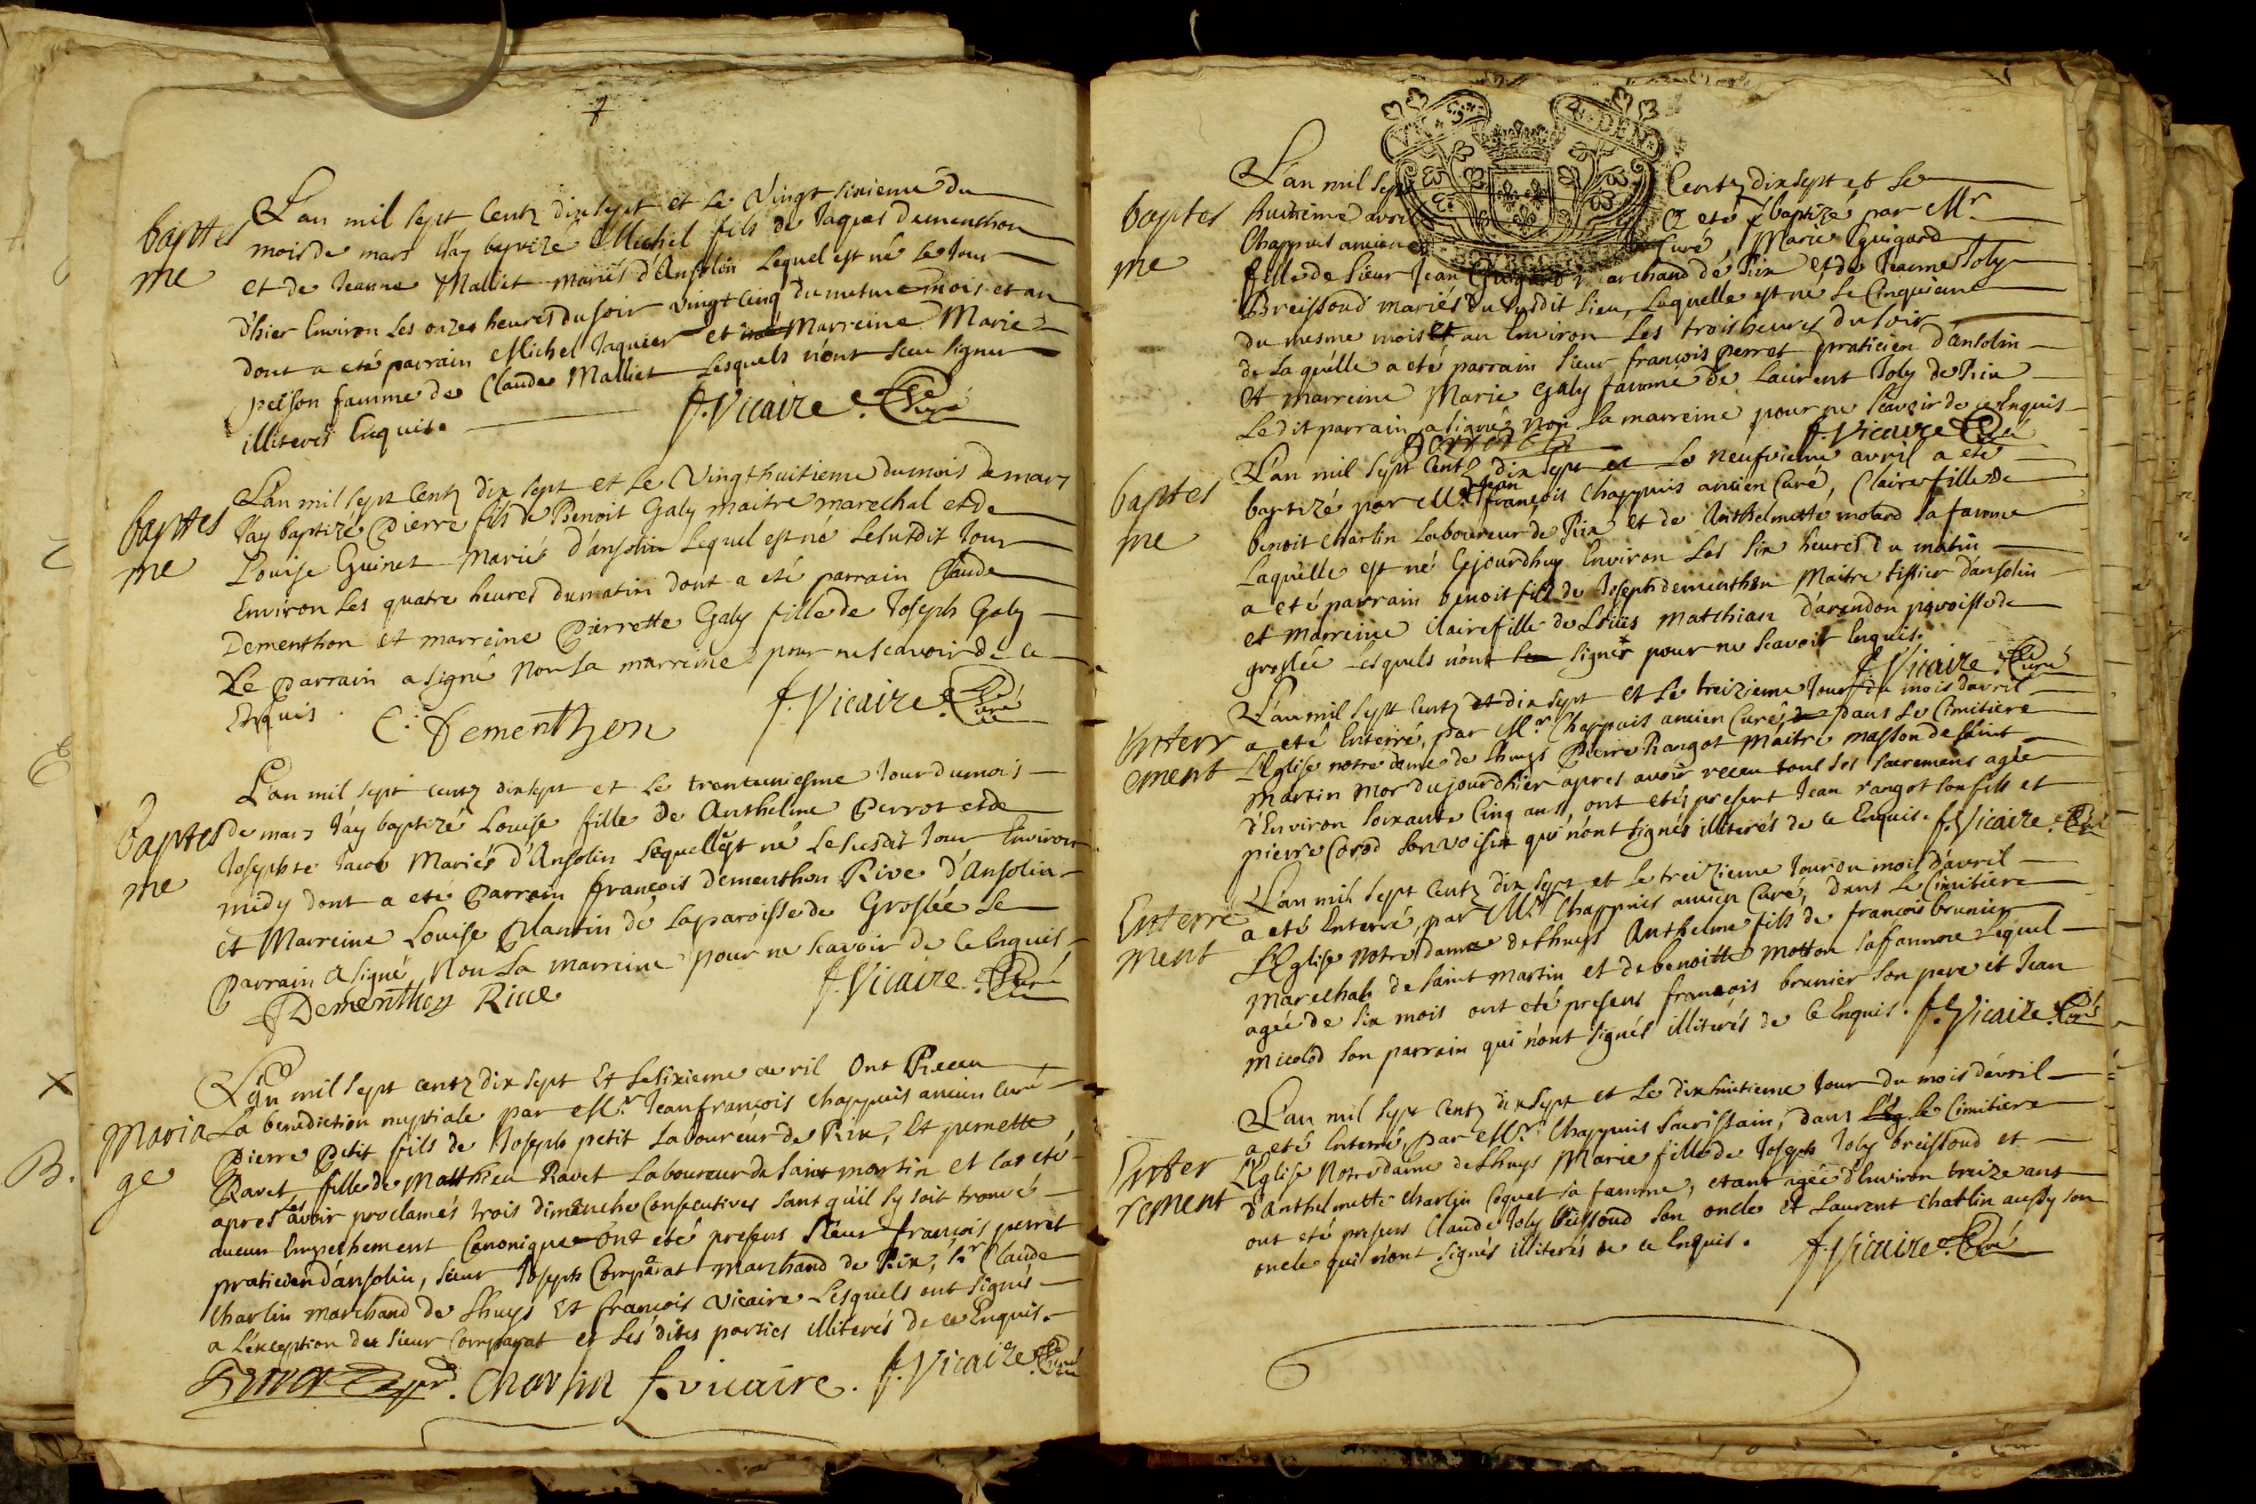 baptes
me
L'an mil sept Centz dix sept et le Vingt sixieme du
mois de mars J'ay baptizé Michel fils de Jaques dementhon
et de Jeanne Malliet mariés d'Ansolin Lequel est né Le Jour
d'hier Environ Les onzes heures du soir vingt cinq du mesme mois et an
dont a eté parrain Michel Jaquier et Marreine Marie
peison famme de Claude Malliet Lesquels n'ont sceu signer
illiterés Enquis.
f. Vicaire Curé
baptes
me
L'an mil sept Centz dix sept et le Vingt huitieme du mois de mars
J'ay baptizé Pierre fils de Benoit Galy maitre marechal et de
Louise Guinet Mariés d'ansolin Lequel est né Lesusdit Jour
Environ Les quatre heures du matin dont a eté parrain Claude
Dementhon et marreine Pierrette Galy fille de Joseph Galy
Le Parrain a signé Non La marreine pour ne scavoir de ce
Enquis.
C: Dementhon
f. Vicaire Curé
Baptes
me
L'an mil sept centz dix sept et Le trenteuniesme Jour du mois
de mars J'ay baptizé Louise fille de Anthelme Perrot et de
Josephte Jacob Mariés d'Ansolin Laquelle est né Le susdit Jour Environ
midy dont a eté Parrain françois dementhon Rive d'Ansolin
et Marreine Louise Mantin de Laparoisse de Groslée Le
Parrain a signé Non La marreine pour ne scavoir de ce Enquis
f Dementhon Rive
f. Vicaire Curé
Maria
ge
L'an mil sept centz dix sept Et Le sixieme avril Ont Receu
La benediction nuptiale par Mr. Jean françois Chappuis ancien Curé
Pierre Petit fils de Joseph petit Laboureur de Rix, Et pernette
Ravet fille de Matthieu Ravet Laboureur de Saint martin et Las eté
apres Les avoir proclamés trois dimanche Consecutives sant qu'il sy soit trouvé
aucun Empechement Canonique Ont eté presens Sieur françois perret
praticien d'ansolin, sieur Joseph Comparat marchand de Rix, Sr Claude
Charlin marchand de Lhuys Et françois Vicaire Lesquels ont signés
a L'exception du sieur Comparat et Les dites parties illiterés de ce Enquis.
Charlin f. vicaire. f. Vicaire Curé
baptes
me
L'an mil sept Centz dix sept et Le
huitieme avril a eté baptizé par Mr
Chappuis ancien Curé, Marie Guigard
fille de Sieur Jean Guigard marchand de Rix et de Jeanne Joly
Breissoud mariés du susdit Lieu, Laquelle est né Le Cinquieme
du mesme mois et an Environ Les trois heures du soir
de Laquelle a eté parrain Sieur françois perret praticien d'ansolin
Et marreine Marie Galy famme de Laurent Joly de Rix
Le dit parrain a signé non La marreine pour ne scavoir de ce Enquis
Perret
f. Vicaire Curé
baptes
me
L'an mil sept Centz dix sept et Le neufvieme avril a eté
baptizé par Mr. Jean françois Chappuis ancien Curé, Claire fille de
benoit Charlin Laboureur de Rix et de Anthelmette motard sa famme
Laquelle est né Cejourdhuy Environ Les six heures du matin
a eté parrain benoit fils de Joseph dementhon Maitre tissier d'ansolin
et marreine Claire fille de Louis Matthian d'arandon paroisse de
groslée Lesquels n'ont signer pour ne scavoir Enquis.
f. Vicaire Curé
Enterr
ement
L'an mil sept Centz dix sept et Le treizieme Jour du mois d'avril
a eté Enterré, par Mr. Chappuis ancien Curé, dans Le Cimitiere
L'Eglise notre dame de Lhuys Pierre Rangot maitre masson de saint
Martin mor du jourdhier apres avoir receu tous ses sacremens agée
d'Environ soixante Cinq ans, ont etés present Jean rangot son fils et
pierre Corod son voisin qui n'ont signés illiterés de ce Enquis. f. Vicaire Curé
Enterre
ment
L'an mil sept Centz dix sept et Le treizieme Jour du mois d'avril
a eté Enterré, par Mr. Chappuis ancien Curé, dans Le Cimitiere
L'Eglise Notre dame de Lhuys Anthelme fils de françois brunier
marechal de saint martin et de benoitte motton sa famme Lequel
agée de six mois ont eté presens françois brunier son pere et Jean
micolod son parrain qui n'ont signés illiterés de Ce Enquis. f. Vicaire Curé
Enter
rement
L'an mil sept Centz dix sept et Le dixhuitieme Jour du mois d'avril
a eté Enterré, par Mr. Chappuis sacristain, dans le Cimitiere
L'Eglise Notre dame de Lhuys Marie fille de Joseph Joly breissoud et
d'Anthelmette charlin Coquet sa famme, etant agée d'Environ treize ans
ont eté presens Claude Joly Breissoud son oncle et Laurent Charlin aussy son
oncle qui n'ont signés illiterés de ce Enquis.
f. Vicaire Curé